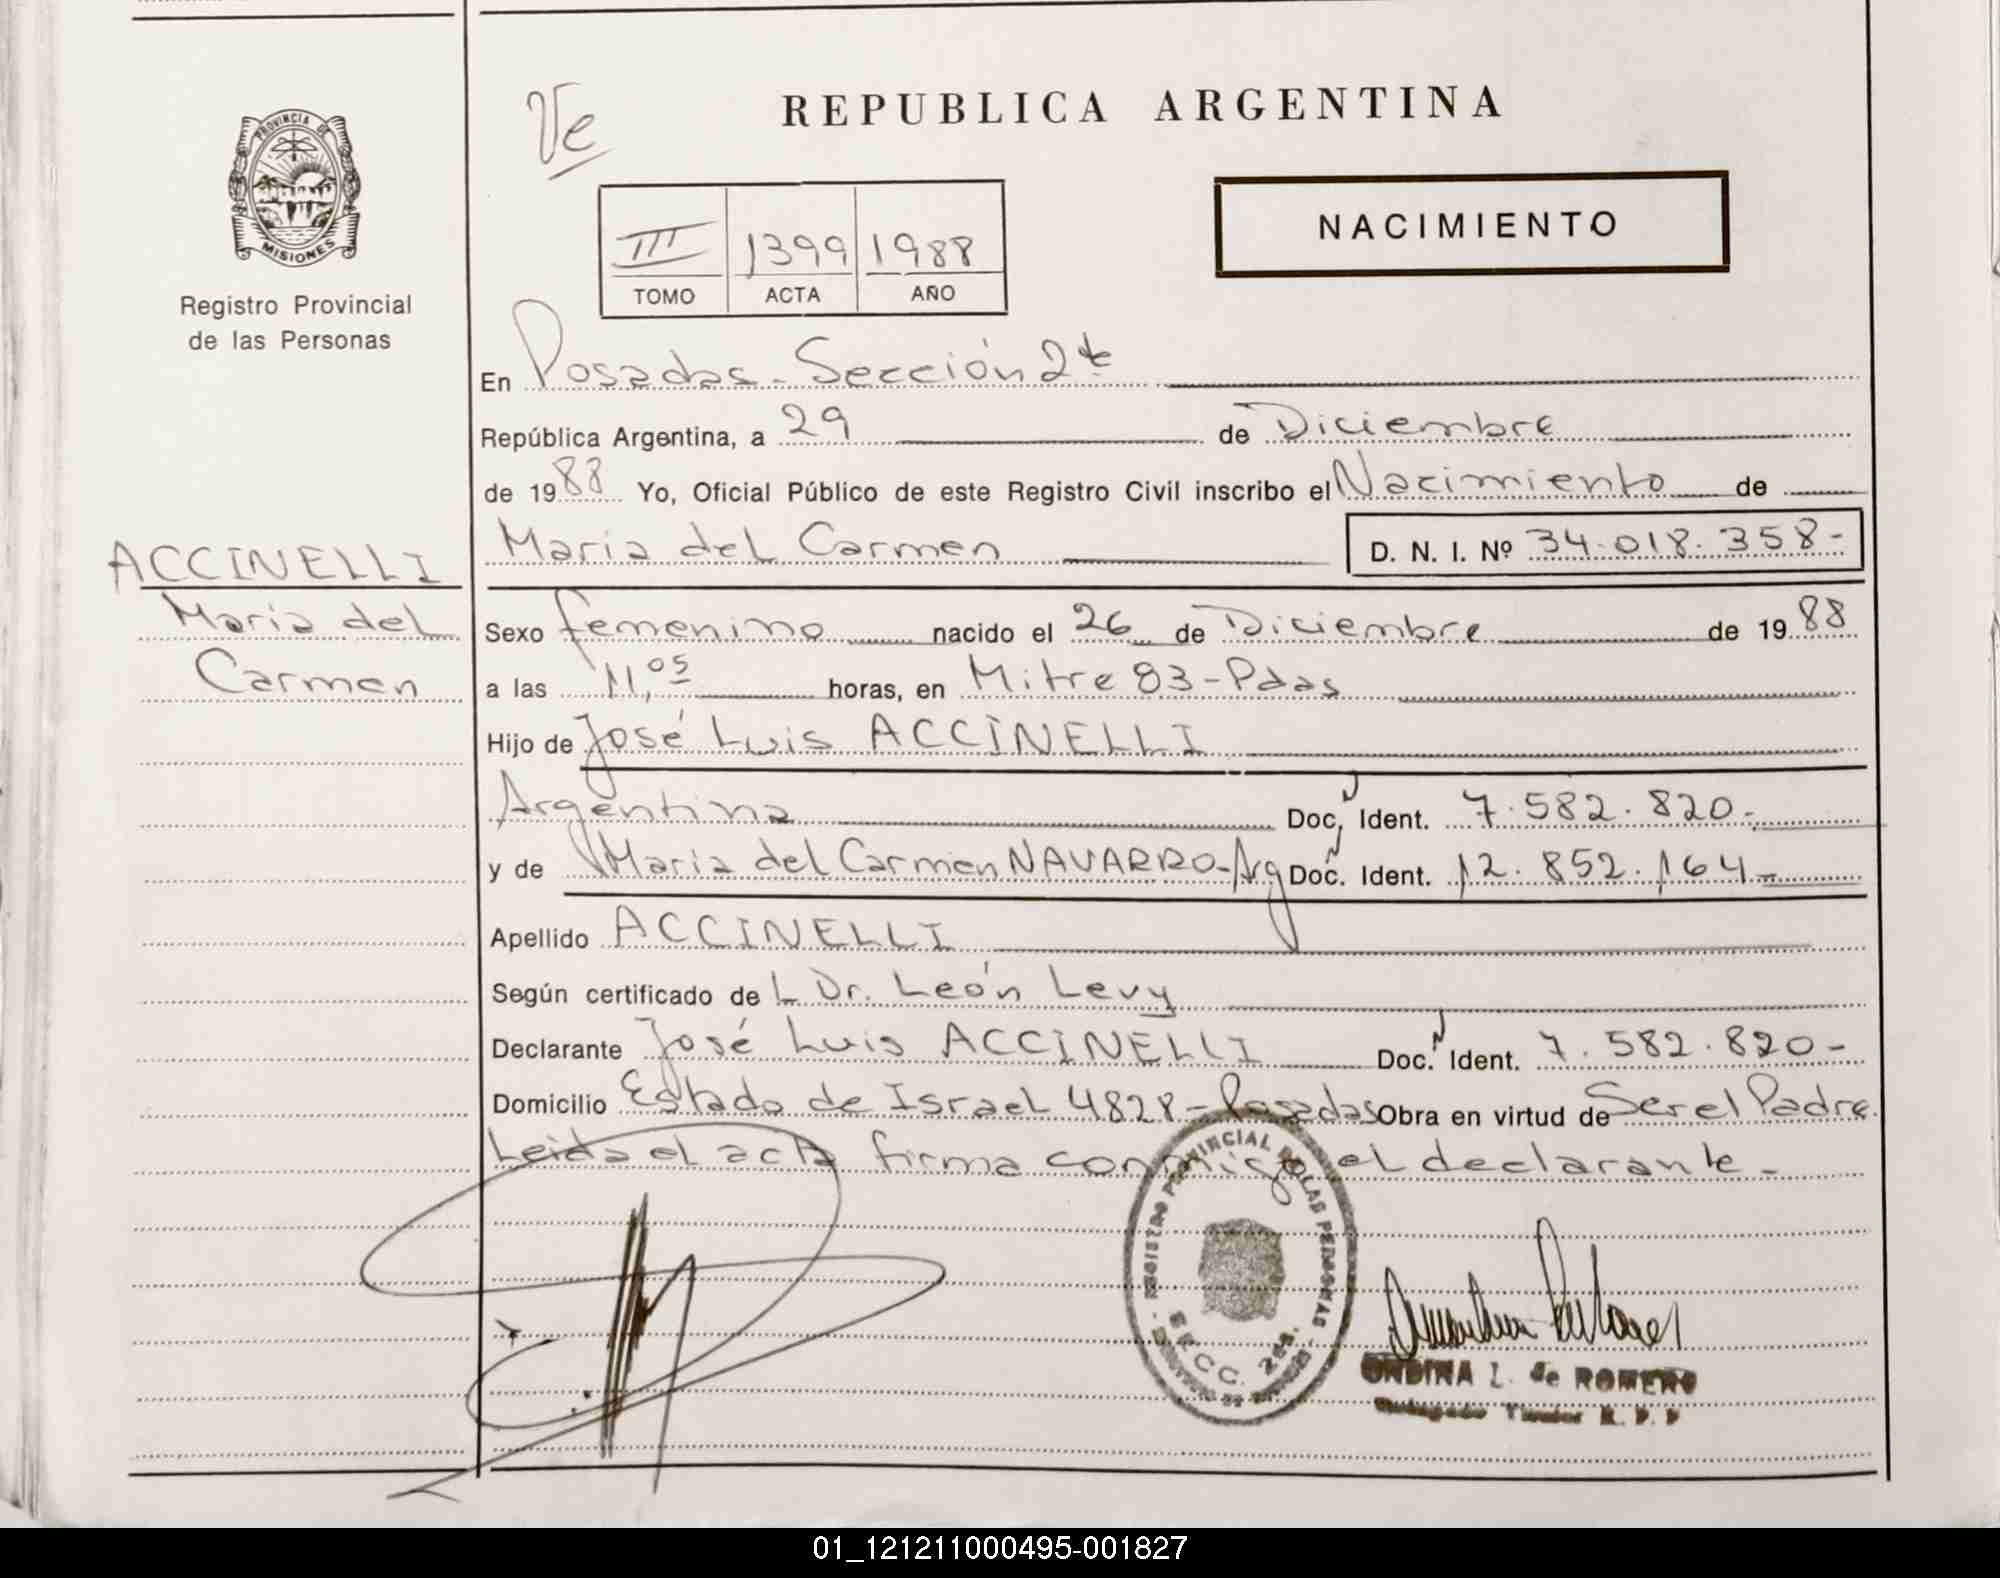 REPUBLICA ARGENTINA
Ve
PROVINCIA DE
MISIONES
Registro Provincial
de las Personas
NACIMIENTO
III 1399 1988
TOMO ACTA AÑO
En Posadas - Sección 2
República Argentina, a 29 de Diciembre
de 1988 Yo, Oficial Público de este Registro Civil inscribo el Nacimiento de
Maria del Carmen D. N. I. Nº 34.018.358-
ACCINELLI
Maria del
Carmen
Sexo femenino nacido el 26 de Diciembre de 1988
a las 11,05 horas, en Mitre 83 - Pdas
Hijo de José Luis ACCINELLI
Argentina Doc. Ident. 7.582.820-
y de Maria del Carmen NAVARRO - Arg Doc. Ident. 12.852.164-
Apellido ACCINELLI
Según certificado de L Dr. León Levy
Declarante José Luis ACCINELLI Doc. Ident. 7.582.820-
Domicilio Estado de Israel 4828 - Posadas Obra en virtud de Ser el Padre.
Leida el acta firma conmigo el declarante -
REGISTRO PROVINCIAL DE LAS PERSONAS
SECC. 2da.
ONDINA L. de ROMERO
01_121211000495-001827